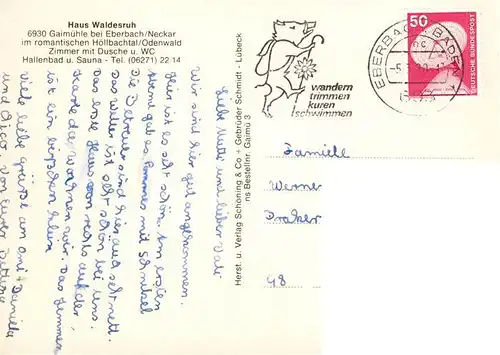 Haus Waldesruh
6930 Gaimühle bei Eberbach/Neckar
im romantischen Höllbachtal/Odenwald
Zimmer mit Dusche u. WC
Hallenbad u. Sauna - Tel. (06271) 22 14
Liebe Mutti und lieber Vati
Wir sind hier gut angekommen.
Hier ist es sehr schön. Am ersten
Abend gab es Pommes mit Schnitzel
Die Betreuer sind hier auch sehr nett.
Das Wetter ist sehr schön bei uns.
Das erste Haus von rechts auf der
Karte da wohnen wir. Das Zimmer
ist ein bißchen klein
Viele liebe Grüße an Omi + Daniella
und Chico. Von Eurer Bettina
Herst. u. Verlag Schöning & Co + Gebrüder Schmidt - Lübeck
ns Bestellnr. Gaimü 3
wandern
trimmen
kuren
schwimmen
EBERBACH, BADEN
50
DEUTSCHE BUNDESPOST
Familie
Werner
48